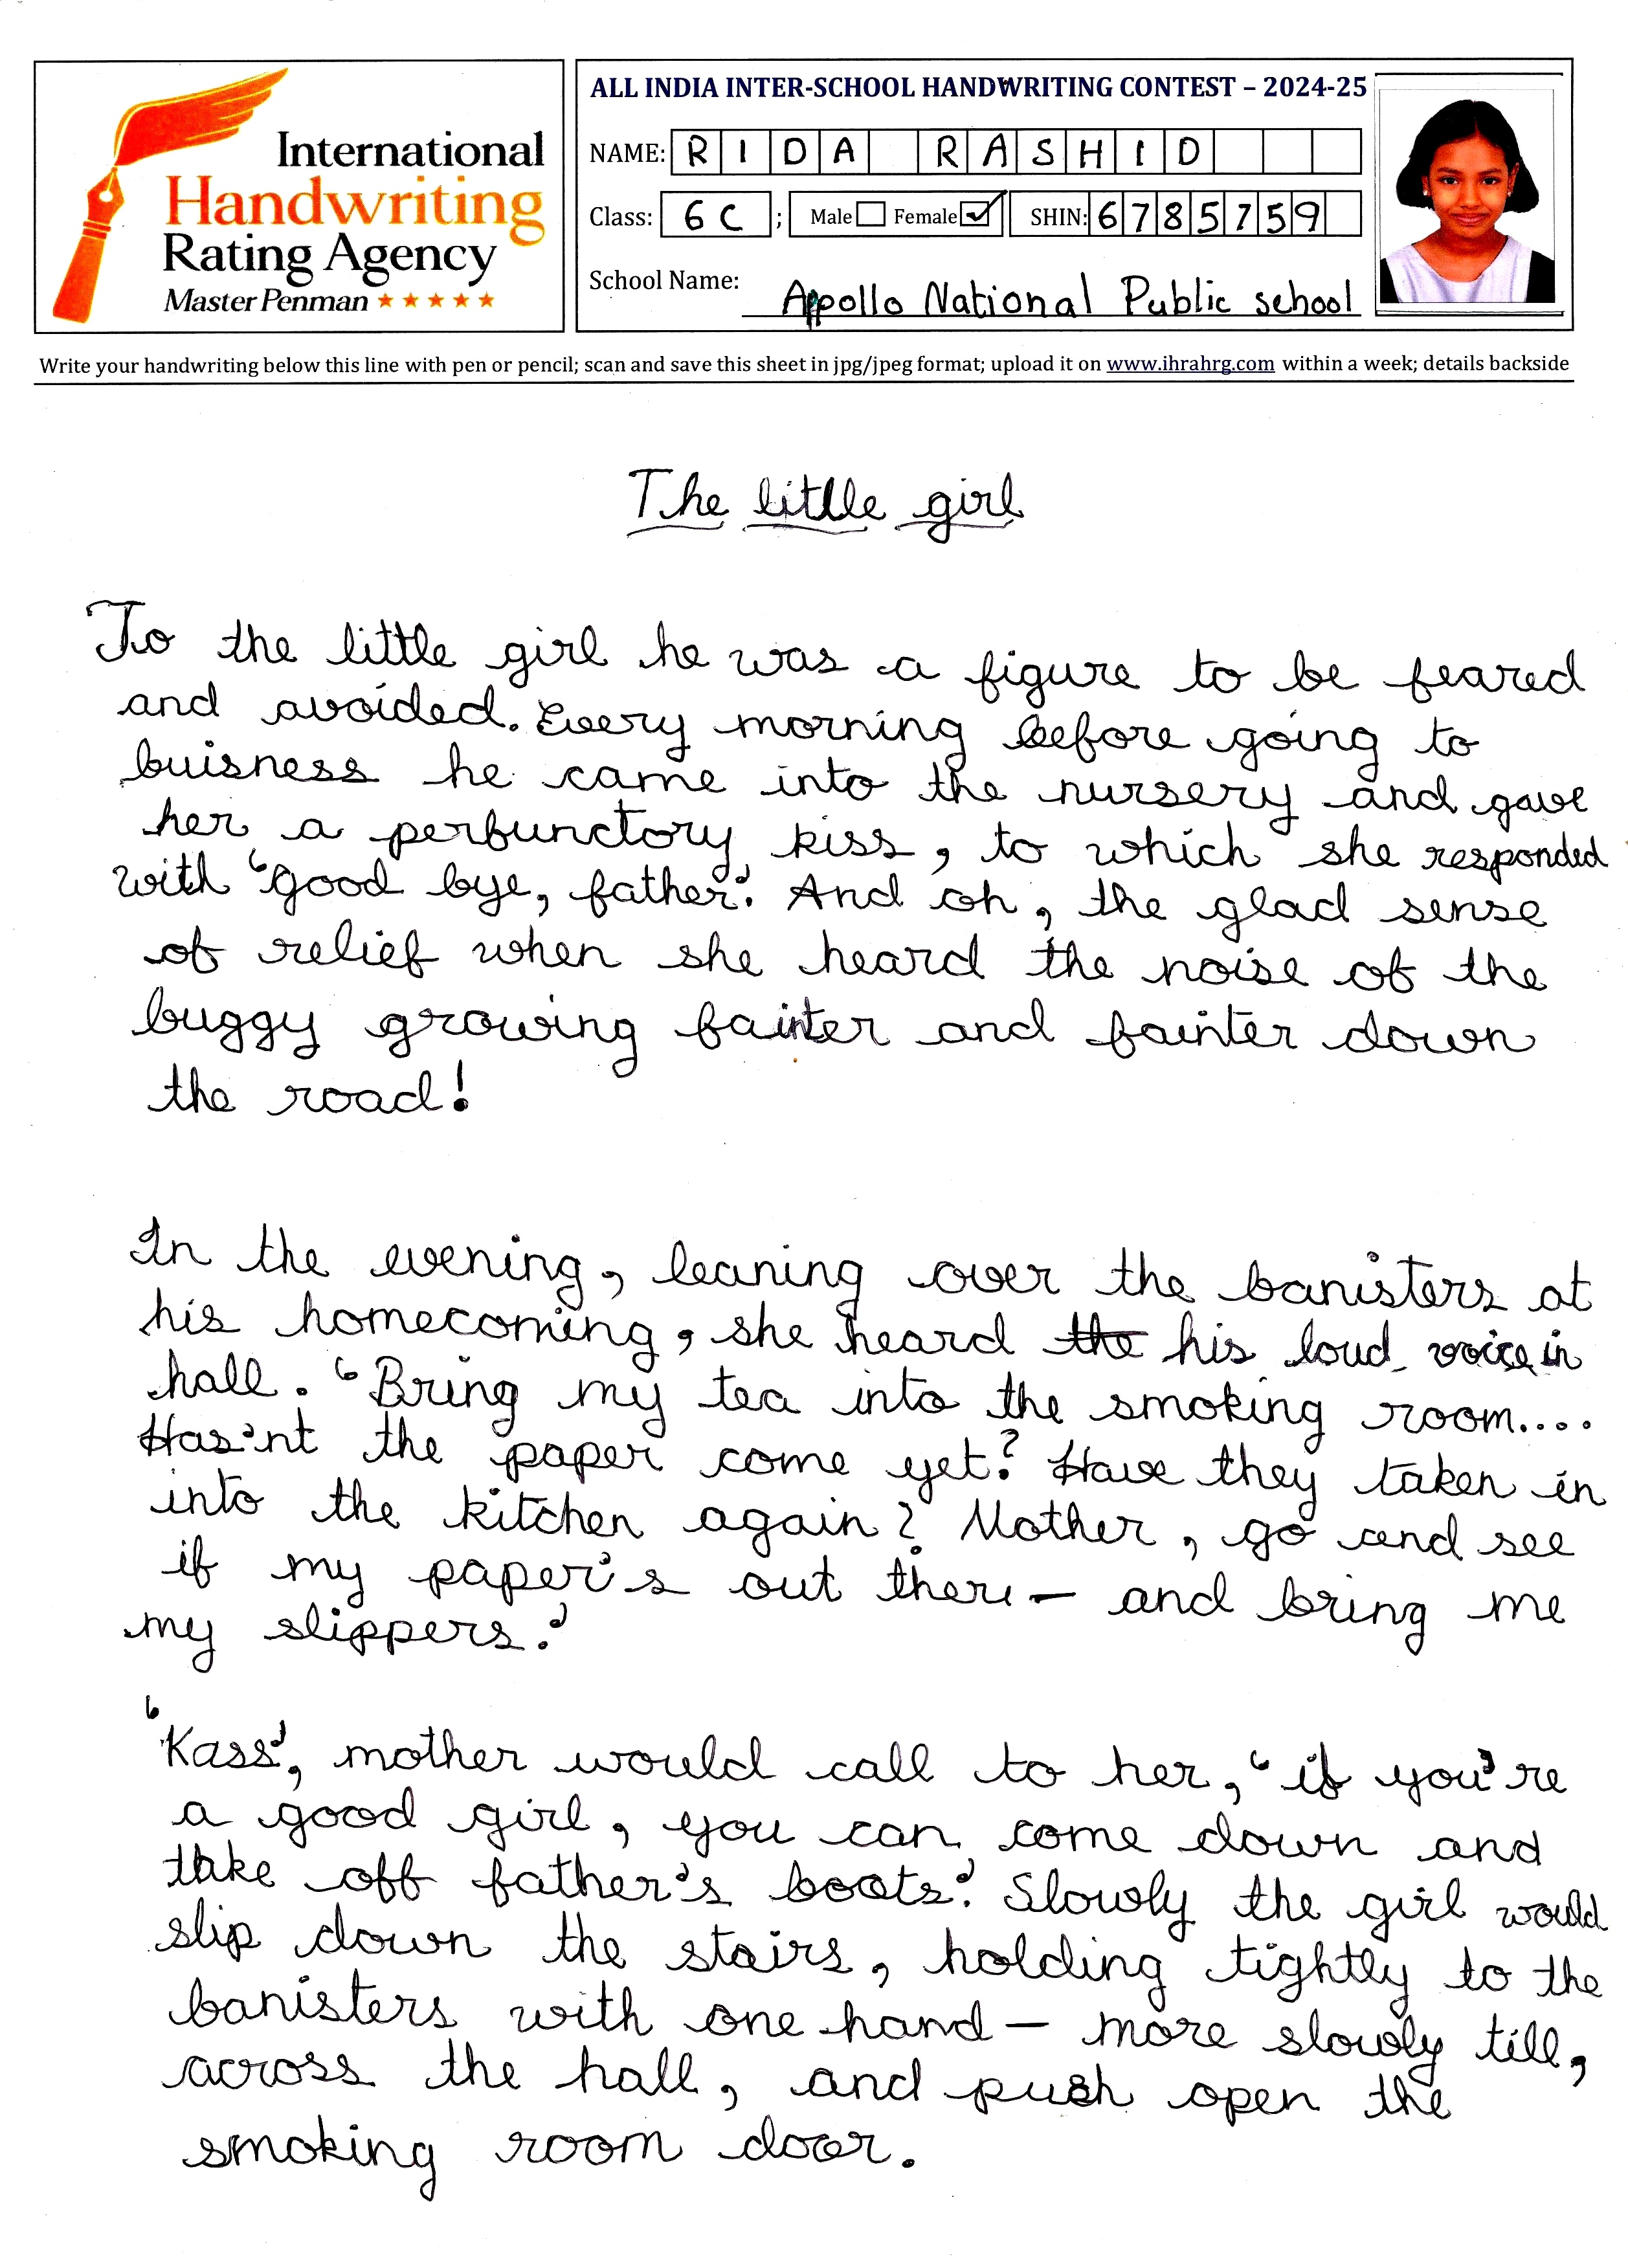 International
Handwriting
Rating Agency
Master Penman
ALL INDIA INTER-SCHOOL HANDWRITING CONTEST – 2024-25
NAME: RIDA RASHID
Class: 6 C ; Male Female ✓ SHIN: 6785759
School Name: Appollo National Public school
Write your handwriting below this line with pen or pencil; scan and save this sheet in jpg/jpeg format; upload it on www.ihrahrg.com within a week; details backside
The little girl
To the little girl he was a figure to be feared
and avoided. Every morning before going to
buisness he came into the nursery and gave
her a perfunctory kiss, to which she responded
with 'good bye, father.' And oh, the glad sense
of relief when she heard the noise of the
buggy growing fainter and fainter down
the road!
In the evening, leaning over the banisters at
his homecoming, she heard the his loud voice in
hall. 'Bring my tea into the smoking room....
Has'nt the paper come yet? Have they taken in
into the kitchen again? Mother, go and see
if my paper's out there – and bring me
my slippers.'
'Kass', mother would call to her, 'if you're
a good girl, you can come down and
take off father's boots.' Slowly the girl would
slip down the stairs, holding tightly to the
banisters with one hand – more slowly till,
across the hall, and push open the
smoking room door.